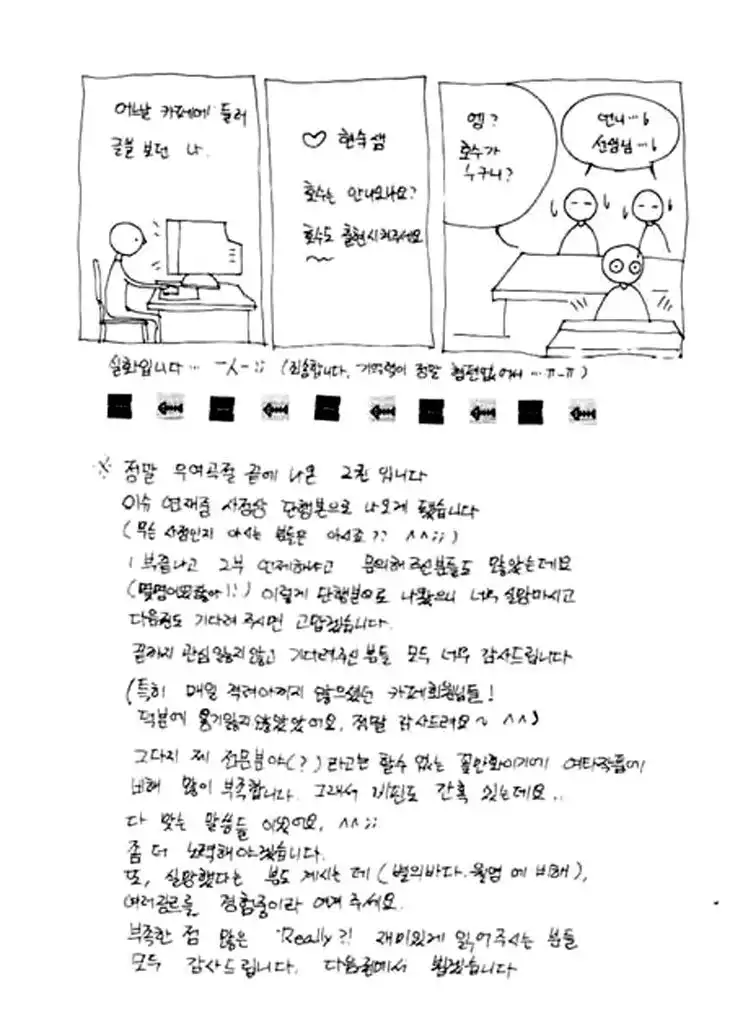 어느날 카페에 들러
글을 보던 나.
♡ 현수샘
호수는 안나오나요?
호수도 출현시켜주세요
~~
엥?
호수가
누구니?
언니…
선영님…
실화입니다… ㅡㅅㅡ;; (죄송합니다. 기억력이 정말 형편없어서…ㅠ-ㅠ)
※ 정말 우여곡절 끝에 나온 2권 입니다
이슈 연재중 사정상 단행본으로 나오게 됐습니다
(무슨 사정인지 아시는 분들은 아시죠?? ^^;;)
1부끝나고 2부 언제하냐고 문의해주신분들도 많았는데요
(몇명이었잖아!!) 이렇게 단행본으로 나왔으니 너무 실망마시고
다음권도 기다려 주시면 고맙겠습니다.
끝까지 관심잃지않고 기다려주신 분들 모두 너무 감사드립니다
(특히 매일 격려아끼지 않으셨던 카페회원님들!
덕분에 용기잃지않았었어요. 정말 감사드려요~ ^^)
그다지 제 전문분야(?)라고는 할수 없는 꽃만화이기에 여타작품에
비해 많이 부족합니다. 그래서 비판도 간혹 있는데요..
다 맞는 말씀들 이었어요. ^^;;
좀 더 노력해야겠습니다.
또, 실망했다는 분도 계시는 데 (별의바다.월영 에 비해),
여러장르를 경험중이라 여겨 주세요.
부족한 점 많은 'Really?! 재미있게 읽어주시는 분들
모두 감사드립니다. 다음권에서 뵙겠습니다